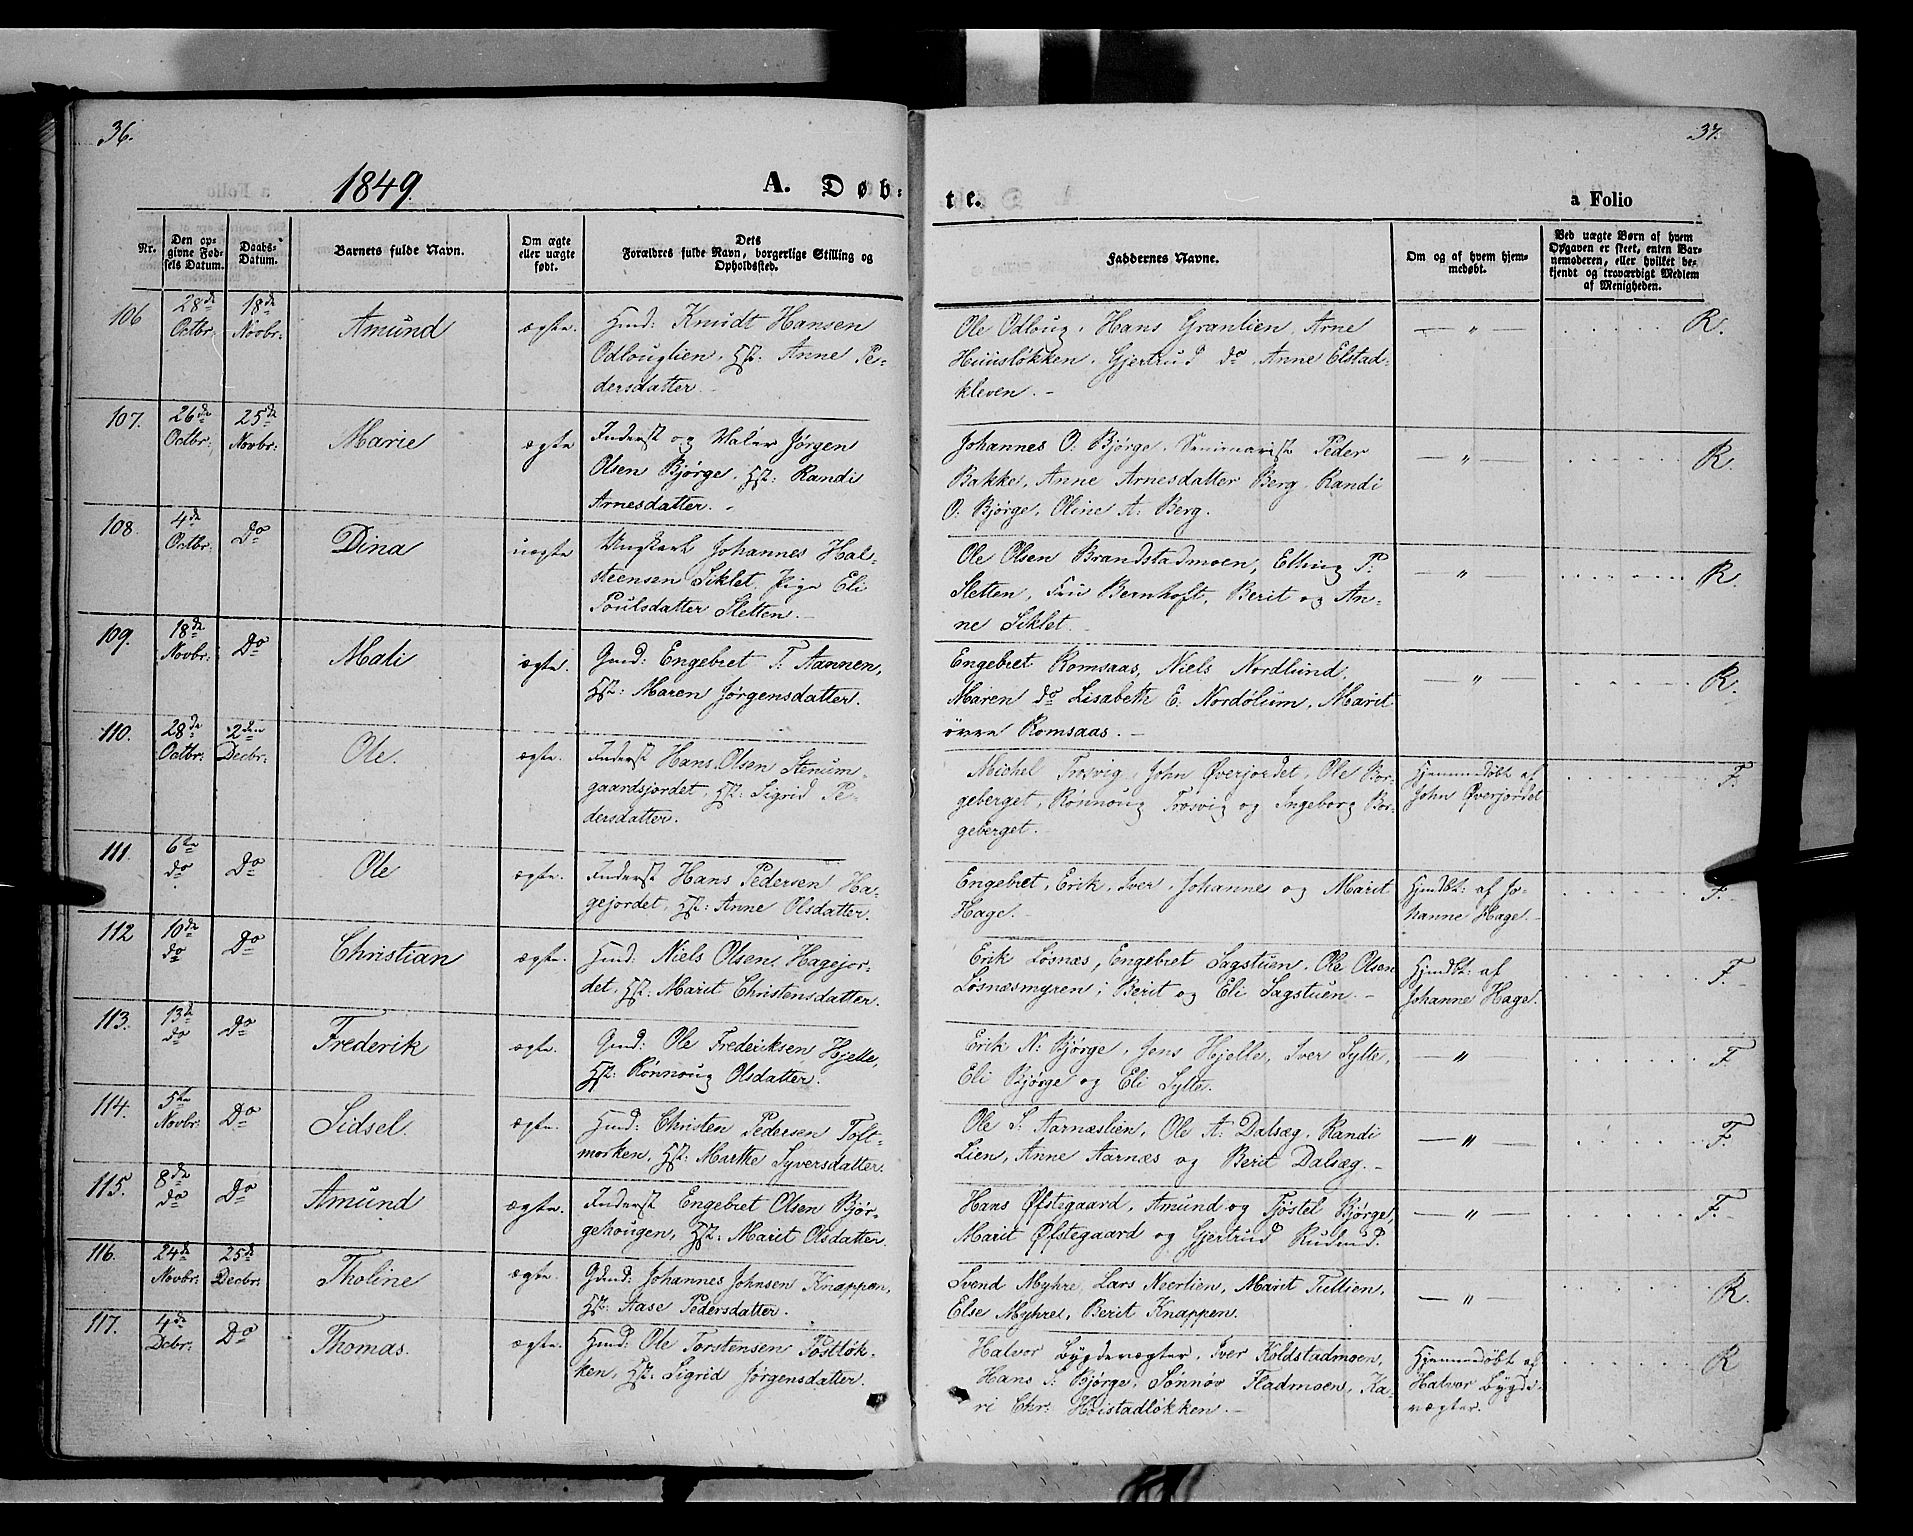 36.
37.
1849.
A. Døb-
te.
a Folio
Nr.
Den op-
givne Fød-
sels Datum.
Daabs-
Datum.
Barnets fulde Navn.
Om ægte
eller uægte
født.
Dets
Forældres fulde Navn, borgerlige Stilling og
Opholdssted.
Faddernes Navne.
Om og af hvem hjem-
medøbt.
Ved uægte Børn af hvem
Opgaven er skeet, enten Bar-
nemoderen, eller hvilket be-
kjendt og troværdigt Medlem
af Menigheden.
106 28de Octbr: 18de Novbr: Amund ægte.
Hmd: Knudt Hansen
Odlouglien, Hst: Anne Pe-
dersdatter.
Ole Odloug, Hans Granlien, Arne
Huusløkken, Gjertrud do, Anne Elstad-
kleven. -
— " — R.
107. 26de Octbr: 25de Novbr: Marie ægte
Inderst og Maler Jørgen
Olsen Bjørge, Hst: Randi
Arnesdatter. -
Johannes O. Bjørge, Seminarist Peder
Bakke, Anne Arnesdatter Berg, Randi
O. Bjørge, Oline A. Berg.
— " — R.
108. 4de Octbr: Do Dina uægte
Ungkarl Johannes Hal-
steensen Siklet, Pige Eli
Poulsdatter Sletten. -
Ole Olsen Brandstadmoen, Elling P.
Sletten, Bernhoft, Berit og An-
ne Siklet.
— " — R
109. 18de Novbr: Do Mali ægte.
Gmd: Engebret T. Aannen,
Hst: Maren Jørgensdatter.
Engebret Romsaas, Niels Nordlund,
Maren do Lisabeth E. Nordølum, Marit
øvre Romsaas. -
— " — R.
110. 28de Octbr: 2den Decbr: Ole. ægte.
Inderst Hans Olsen Stenum-
gaardsjordet, Hst: Sigrid Pe-
dersdatter.
Michel Trosvig, John Øverjordet, Ole Bor-
geberget, Rønnoug Trosvig og Ingeborg Bor-
geberget. -
Hjemmedøbt af
John Øverjordet
F.
111. 6te do Do Ole ægte.
Inderst Hans Pedersen Ha-
gejordet, Hst: Anne Olsdatter.
Engebret, Erik, Iver, Johannes og Marit
Hage. -
Hjmdbt: af Jo-
hanne Hage. -
F.
112 10de do Do Christian ægte.
Hmd: Niels Olsen Hagejor-
det, Hst: Marit Christensdatter.
Erik Løsnæs, Engebret Sagstuen, Ole Olsen
Løsnæsmyren, Berit og Eli Sagstuen. -
Hjmdbt: af
Johanne Hage.
F.
113. 13de do Do Frederik ægte.
Gmd: Ole Frederiksen Hjelle,
Hst: Rønnoug Olsdatter.
Erik N. Bjørge, Jens Hjelle, Iver Sylte,
Eli Bjørge og Eli Sylte.
— " — F.
114. 5te Novbr: Do Sidsel. ægte.
Hmd: Christen Pedersen Toft-
morken, Hst: Marthe Syversdatter.
Ole S. Aarnæslien, Ole A. Dalsæg, Randi
Lien, Anne Aarnæs og Berit Dalsæg. -
— " — F.
115. 8de do Do Amund ægte.
Inderst Engebret Olsen Bjør-
gehougen, Hst: Marit Olsdatter.
Hans Øfstegaard, Amund og Tjøstel Bjørge,
Marit Øfstegaard og Gjertrud Rudmd.
— " — F.
116. 24de Novbr: 25de Decbr: Tholine ægte.
Gdmd: Johannes Johnsen Knappen,
Hst: Aase Pedersdatter.
Svend Myhre, Lars Neerlien, Marit Tullien,
Else Myhre, Berit Knappen.
— " — R.
117. 4de Dcbr: Do Thomas. ægte.
Hmd: Ole Torstensen Tostløk-
ken, Hst: Sigrid Jørgensdatter.
Halvor Bygdevægter, Iver Koldstadmoen,
Hans T. Bjørge, Sønnøv Stadmoen, Ka-
ri Chr: Høistadløkken. -
Hjemmedøbt af
Halvor Bygde-
vægter.
R